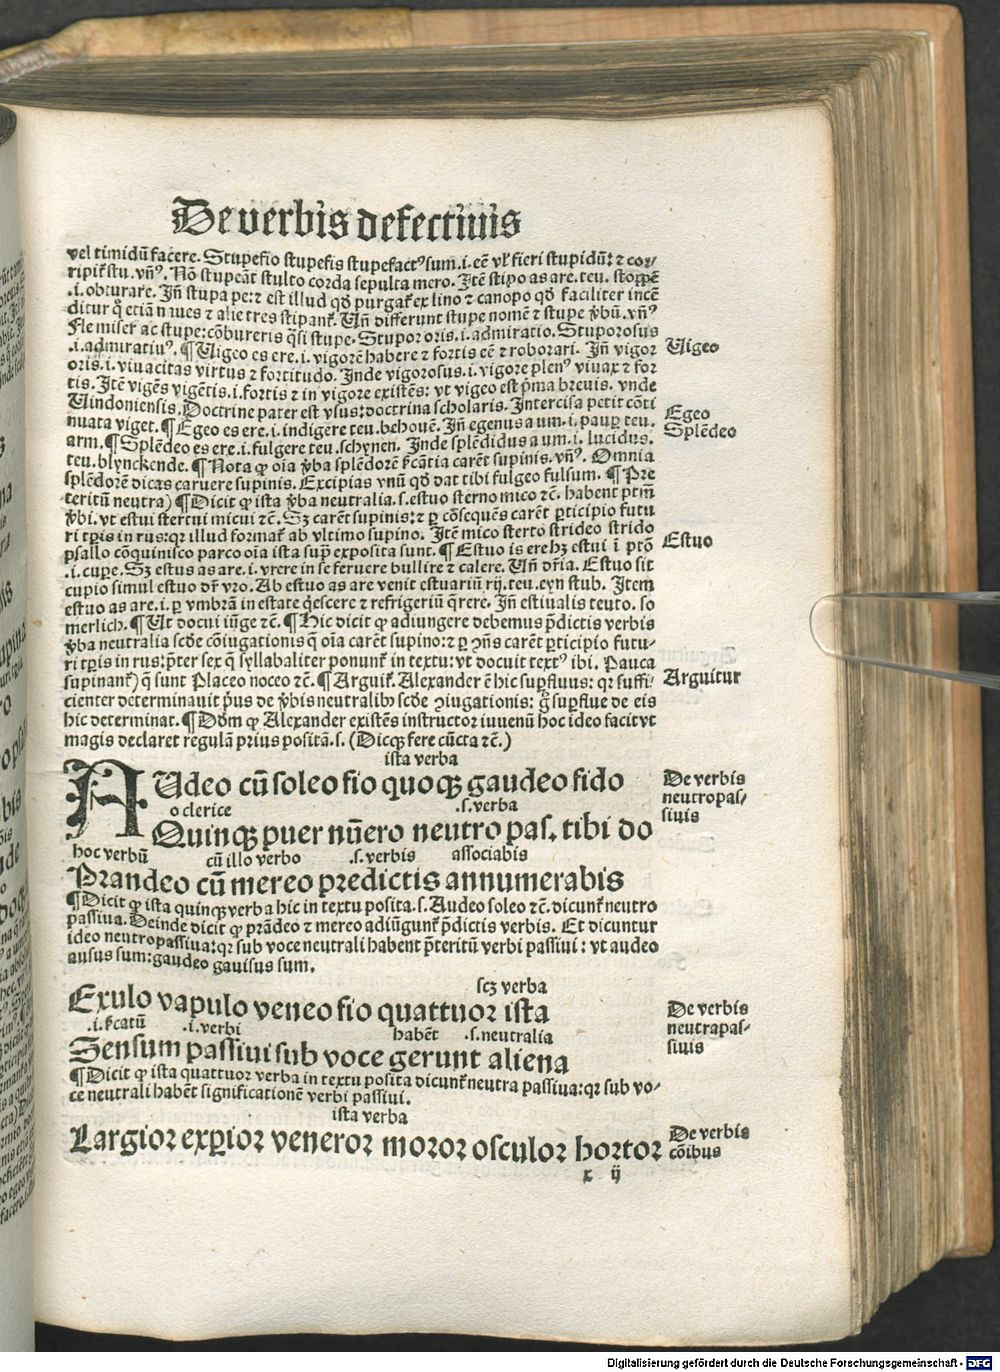 De verbis defectiuis
vel timidũ facere. Stupefio stupefis stupefactꝰ sum .i. eẽ vĺ fieri stupidũ: ⁊ cor⸗
ripiť stu. vñꝰ. Nõ stupeãt stulto corda sepulta mero. Jtẽ stipo as are. teu. stoppẽ
.i. obturare. Jñ stupa pe: ⁊ est illud qđ purgať ex lino ⁊ canopo qđ faciliter incẽ
ditur q̃ etiã naues ⁊ alie tres stipanť. Uñ differunt stupe nomẽ ⁊ stupe v̾bũ. vñꝰ
Fle miser ac stupe: cõbureris q̃si stupe. Stupor oris .i. admiratio. Stuporosus
.i. admiratiuꝰ. ¶ Uigeo es ere .i. vigorẽ habere ⁊ fortis eẽ ⁊ roborari. Jñ vigor
oris .i. viuacitas virtus ⁊ fortitudo. Jnde vigorosus .i. vigore plenꝰ viuax ⁊ for
tis. Jtẽ vigẽs vigẽtis .i. fortis ⁊ in vigore existẽs: vt vigeo est p̃ma breuis. vnde
Uindoniensis. Doctrine pater est vsus: doctrina scholaris. Jntercisa petit cõti
nuata viget. ¶ Egeo es ere .i. indigere teu. behouẽ. Jñ egenus a um .i. paup̲ teu.
arm. ¶ Splẽdeo es ere .i. fulgere teu. schynen. Jnde splẽdidus a um .i. lucidus.
teu. blynckende. ¶ Nota ꝙ oĩa v̾ba splẽdorẽ ẜcãtia carẽt supinis. vñꝰ. Omnia
splẽdorẽ dicas caruere supinis. Excipias vnũ qđ dat tibi fulgeo fulsum. ¶ Pre
teritũ neutra) ¶ Dicit ꝙ ista v̾ba neutralia .s. estuo sterno mico ⁊c̃. habent p̃tm̃
v̾bi. vt estui stertui micui ⁊c̃. Sꝫ carẽt supinis: ⁊ p̲ cõseq̃uẽs carẽt p̲ticipio futu
ri tp̃is in rus: qꝛ illud formať ab vltimo supino. Jtẽ mico sterto strideo strido
psallo cõquinisco parco oĩa ista sup̃ exposita sunt. ¶ Estuo is ere hꝫ estui ĩ p̃tõ
.i. cup̲e. Sꝫ estuo as are .i. vrere in se feruere bullire ⁊ calere. Uñ dr̃ia. Estuo sit
cupio simul estuo dr̃ vro. Ab estuo as are venit estuariũ rij. teu. eyn stub. Jtem
estuo as are .i. p̲ vmbrã in estate q̃escere ⁊ refrigeriũ q̃rere. Jñ estiualis teuto. so
merlich. ¶ Ut docui iũge ⁊c̃. ¶ Hic dicit ꝙ adiungere debemus p̃dictis verbis
v̾ba neutralia scđe cõiugationis q̃ oĩa carẽt supino: ⁊ p̲ ꝯñs carẽt p̲ticipio futu⸗
ri tp̃is in rus: p̃ter sex q̃ syllabaliter ponunť in textu: vt docuit textꝰ ibi. Pauca
supinanť) q̃ sunt Placeo noceo ⁊c̃. ¶ Arguiť. Alexander ẽ hic sup̲fluus: qꝛ suffi⸗
cienter determinauit p̃us de v̾bis neutralibꝫ scđe ꝯiugationis: g̃ sup̲flue de eis
hic determinat. ¶ Dõm ꝙ Alexander existẽs instructor iuuenũ hoc ideo facit vt
magis declaret regulã prius positã .s. (Dicqꝫ fere cũcta ⁊c̃.)
Uigeo
Egeo
Splẽdeo
Estuo
Arguitur
ista verba
AUdeo cũ soleo fio quoqꝫ gaudeo fido
o clerice .s. verba
Quinqꝫ puer nũero neutro pas. tibi do
hoc verbũ cũ illo verbo .s. verbis associabis
Prandeo cũ mereo predictis annumerabis
De verbis
neutropas⸗
siuis
¶ Dicit ꝙ ista quinqꝫ verba hic in textu posita .s. Audeo soleo ⁊c̃. dicunť neutro
passiua. Deinde dicit ꝙ prãdeo ⁊ mereo adiũgunť p̃dictis verbis. Et dicuntur
ideo neutropassiua: qꝛ sub voce neutrali habent p̃teritũ verbi passiui: vt audeo
ausus sum: gaudeo gauisus sum.
scꝫ verba
Exulo vapulo veneo fio quattuor ista
.i. ẜcatũ .i. verbi habẽt .s. neutralia
Sensum passiui sub voce gerunt aliena
De verbis
neutrapas⸗
siuis
¶ Dicit ꝙ ista quattuor verba in textu posita dicunť neutra passiua: qꝛ sub vo⸗
ce neutrali habẽt significationẽ verbi passiui.
ista verba
Largior exp̲ior veneror moror osculor hortor
De verbis
cõibus
x ij
Digitalisierung gefördert durch die Deutsche Forschungsgemeinschaft - DFG